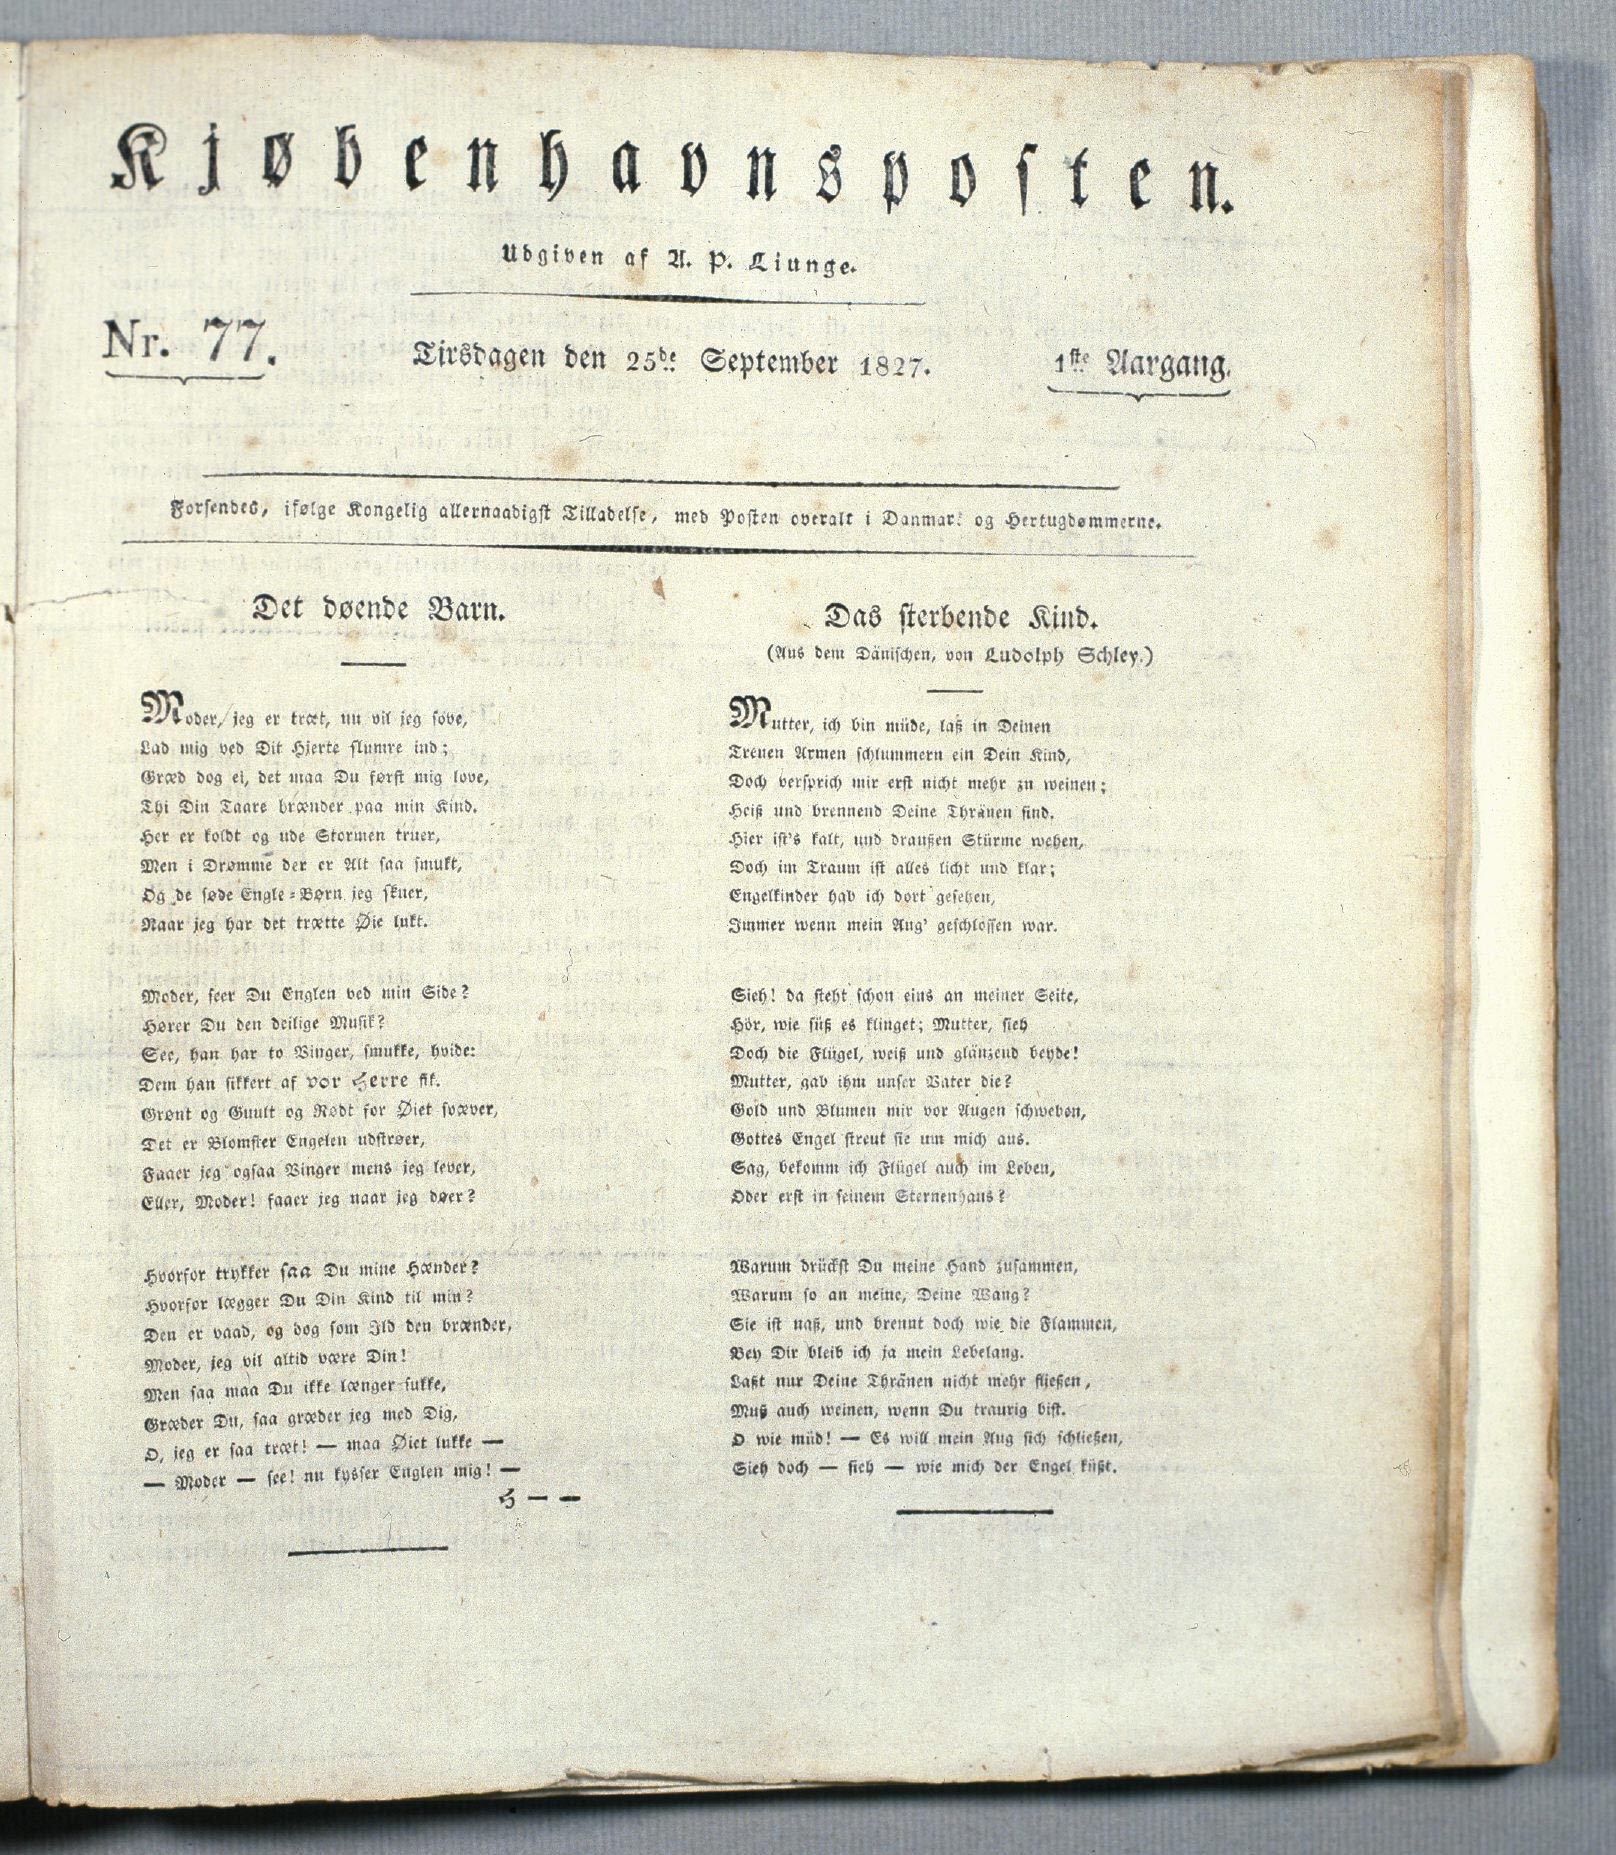 Kjøbenhavnsposten.
Udgiven af A. P. Liunge.
Nr. 77.
Tirsdagen den 25de September 1827.
1ste Aargang.
Forsendes, ifølge Kongelig allernaadigst Tilladelse, med Posten overalt i Danmark og Hertugdømmerne.
Det døende Barn.
Moder, jeg er træt, nu vil jeg sove,
Lad mig ved Dit Hjerte slumre ind;
Græd dog ei, det maa Du først mig love,
Thi Din Taare brænder paa min Kind.
Her er koldt og ude Stormen truer,
Men i Drømme der er Alt saa smukt,
Og de søde Engle-Børn jeg skuer,
Naar jeg har det trætte Øie lukt.
Moder, seer Du Englen ved min Side?
Hører Du den deilige Musik?
See, han har to Vinger, smukke, hvide:
Dem han sikkert af vor Herre fik.
Grønt og Guult og Rødt for Øiet svæver,
Det er Blomster Engelen udstrøer,
Faaer jeg ogsaa Vinger mens jeg lever,
Eller, Moder! faaer jeg naar jeg døer?
Hvorfor trykker saa Du mine Hænder?
Hvorfor lægger Du Din Kind til min?
Den er vaad, og dog som Ild den brænder,
Moder, jeg vil altid være Din!
Men saa maa Du ikke længer sukke,
Græder Du, saa græder jeg med Dig,
O, jeg er saa træt! — maa Øiet lukke —
— Moder — see! nu kysser Englen mig! —
H — —
Das sterbende Kind.
(Aus dem Dänischen, von Ludolph Schley.)
Mutter, ich bin müde, laß in Deinen
Treuen Armen schlummern ein Dein Kind,
Doch versprich mir erst nicht mehr zu weinen;
Heiß und brennend Deine Thränen sind.
Hier ist's kalt, und draußen Stürme wehen,
Doch im Traum ist alles licht und klar;
Engelkinder hab ich dort gesehen,
Immer wenn mein Aug' geschlossen war.
Sieh! da steht schon eins an meiner Seite,
Hör, wie süß es klinget; Mutter, sieh
Doch die Flügel, weiß und glänzend beyde!
Mutter, gab ihm unser Vater die?
Gold und Blumen mir vor Augen schweben,
Gottes Engel streut sie um mich aus.
Sag, bekomm ich Flügel auch im Leben,
Oder erst in seinem Sternenhaus?
Warum drückst Du meine Hand zusammen,
Warum so an meine, Deine Wang?
Sie ist naß, und brennt doch wie die Flammen,
Bey Dir bleib ich ja mein Lebelang.
Laßt nur Deine Thränen nicht mehr fließen,
Muß auch weinen, wenn Du traurig bist.
O wie müd! — Es will mein Aug sich schließen,
Sieh doch — sieh — wie mich der Engel küßt.